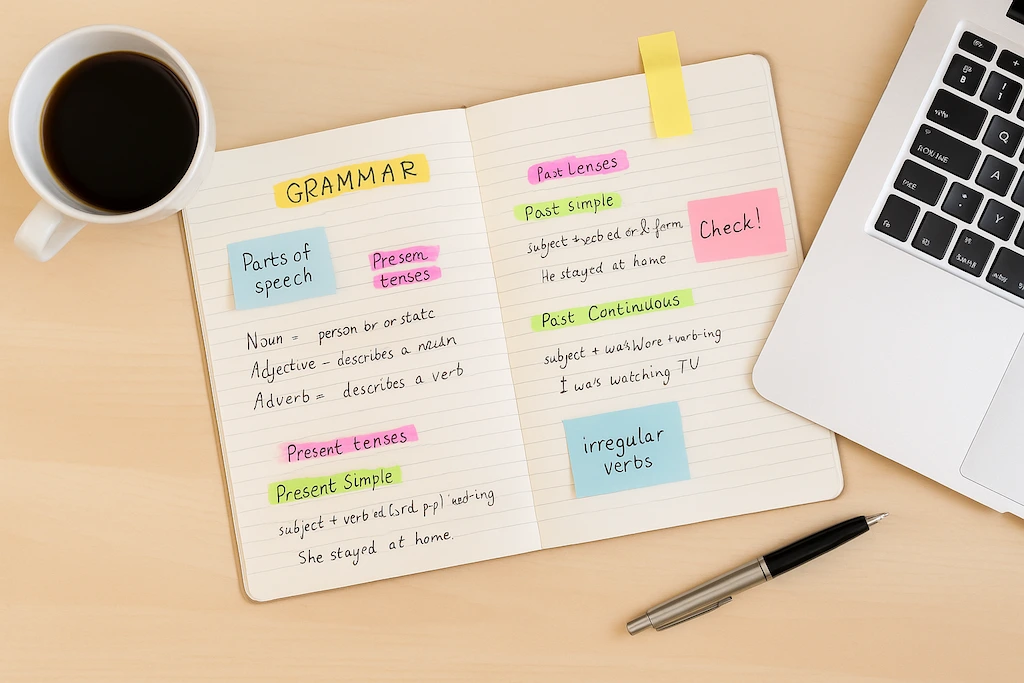 GRAMMAR
Parts of
speech
Presem
tenses
Noun = person or state
Adjective – describes a
Adverb = describes a verb
Present tenses
Present Simple
subject + verb ed
She stayed at home.
Past Lenses
Past simple
subject form
He stayed at home
Check!
Past Continuous
subject +
I was watching TV
irregular
verbs